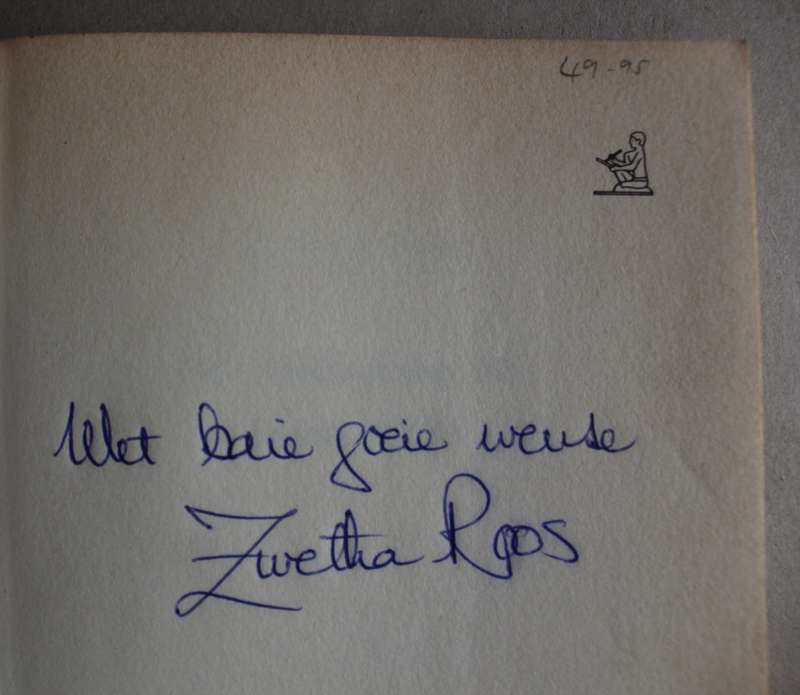 49-95
Met baie goeie wense
Zwetha Roos